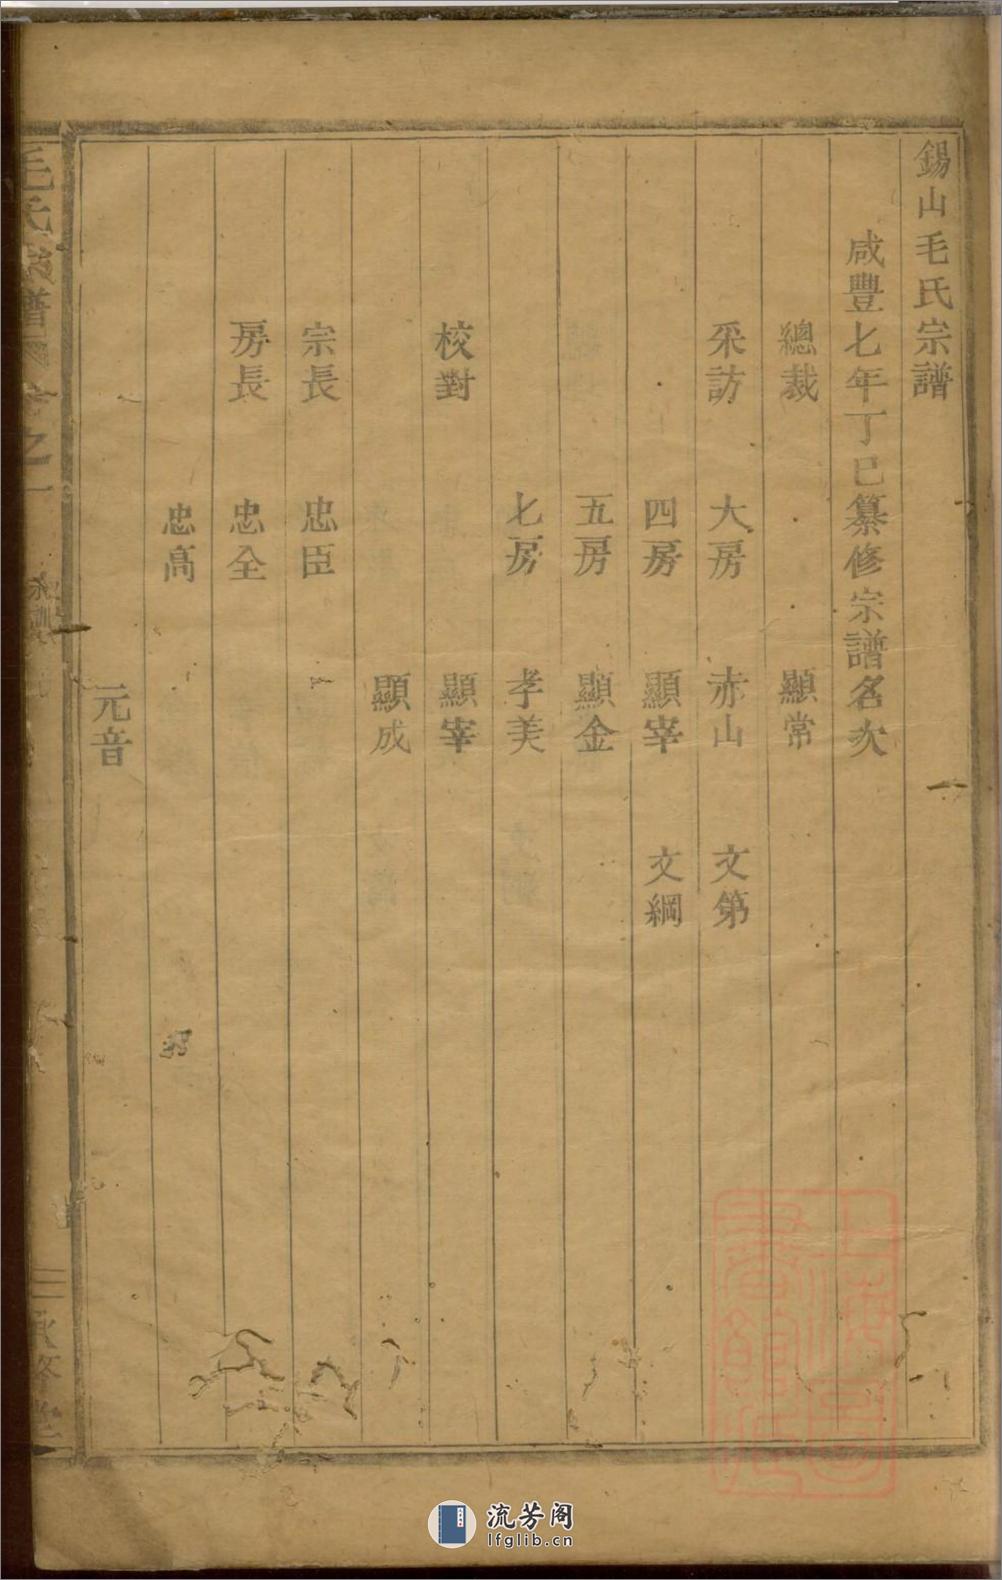 錫山毛氏宗譜
咸豐七年丁巳纂修宗譜名次
總裁 顯常
采訪 大房 赤山 文第
四房 顯宰 文綱
五房 顯金
七房 孝美
校對 顯宰
顯成
宗長 忠臣
房長 忠全
忠高
元音
毛氏宗譜 卷之一
流芳阁
lfglib.cn